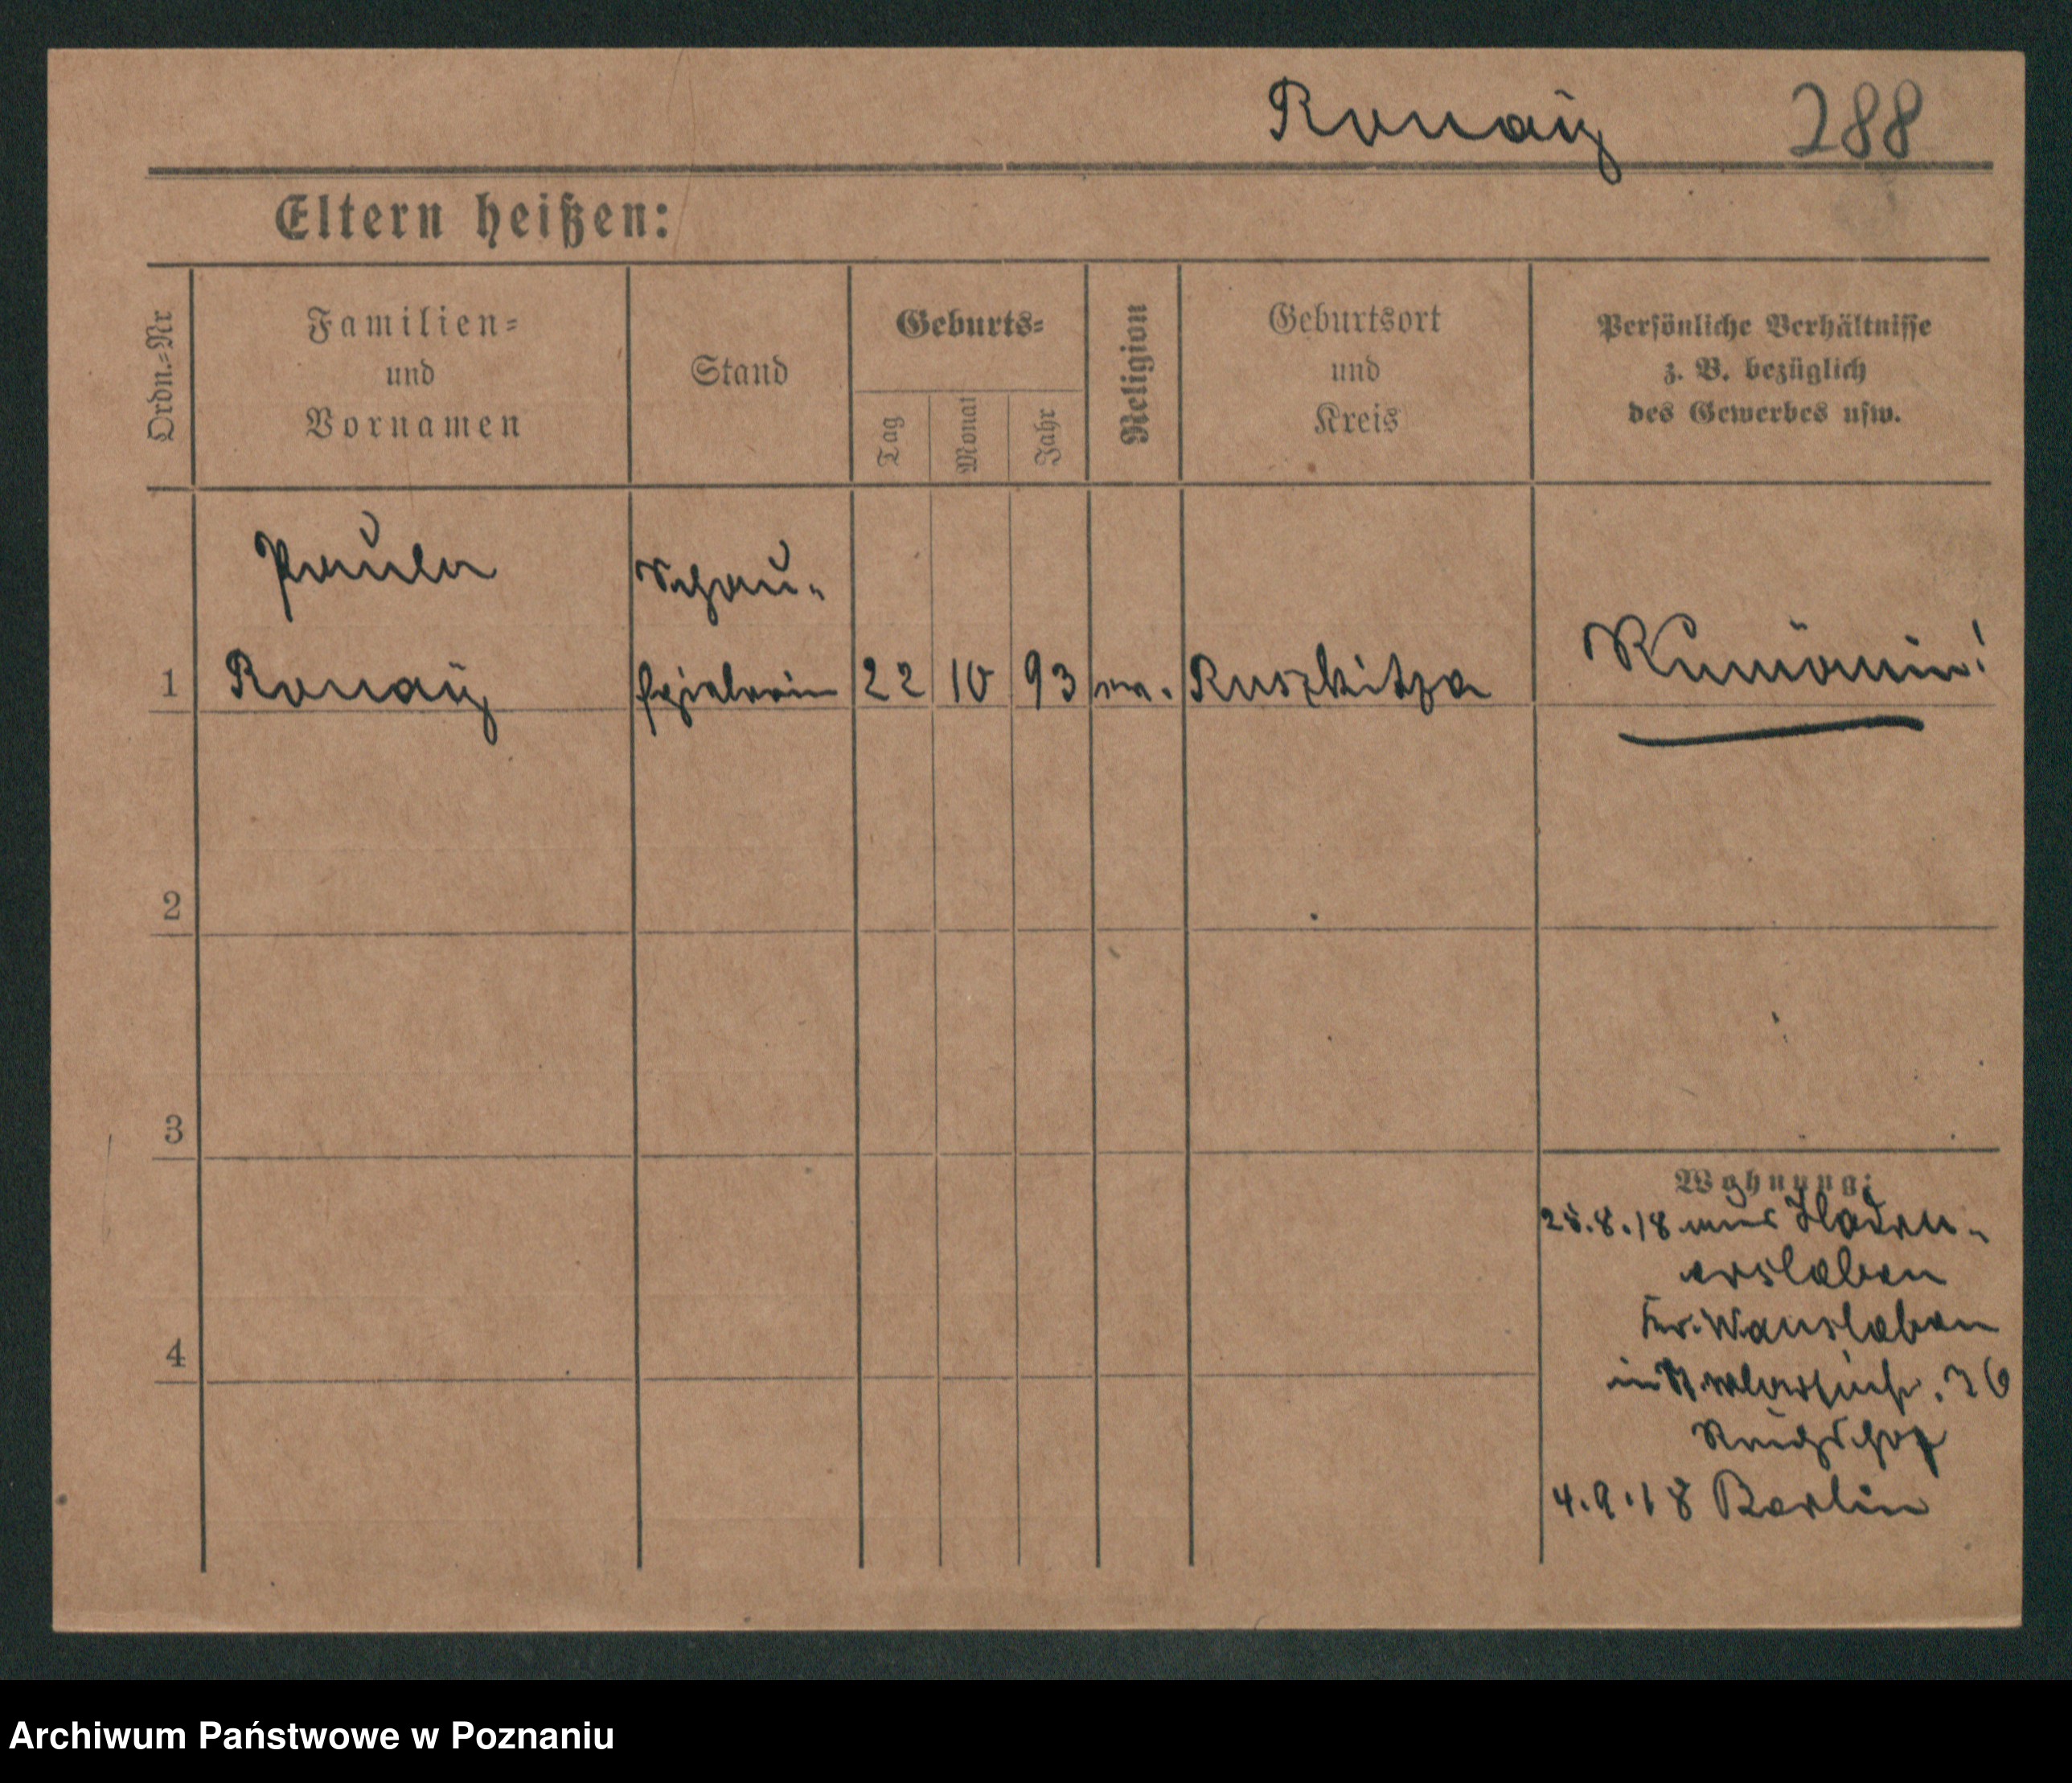 Ronay 288
Eltern heißen:
Ordn.=Nr
Familien=
und
Vornamen
Stand
Geburts=
Tag
Monat
Jahr
Religion
Geburtsort
und
Kreis
Persönliche Verhältnisse
z. B. bezüglich
des Gewerbes usw.
Paula Schau-
1 Ronaÿ spielerin 22 10 93 Ruszkitza Rumänin!
2
3
4
Wohnung:
.8.18 aus
ersleben
Kr. Wansleben
in
4.9.18 Berlin
Archiwum Państwowe w Poznaniu